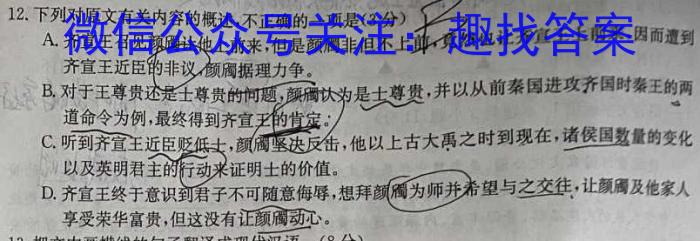 12.下列对原文有关内容的概述,不正确的一项是(3分)
微信公众号关注：趣找答案
A.齐宣王召见颜斶让他上前来,但是颜斶非但不上前,因而遭到
齐宣王近臣的非议,颜斶据理力争。
B.对于王尊贵还是士尊贵的问题,颜斶认为是士尊贵,并以从前秦国进攻齐国时秦王的两
道命令为例,最终得到齐宣王的肯定。
C.听到齐宣王近臣贬低士,颜斶坚决反击,他以上古大禹之时到现在,诸侯国数量的变化
以及英明君主的行动来证明士的价值。
D.齐宣王终于意识到君子不可随意侮辱,想拜颜斶为师并希望与之交往,让颜斶及他家人
享受荣华富贵,但这没有让颜斶动心。
13.把文中画横线的句子翻译成现代汉语。(8分)